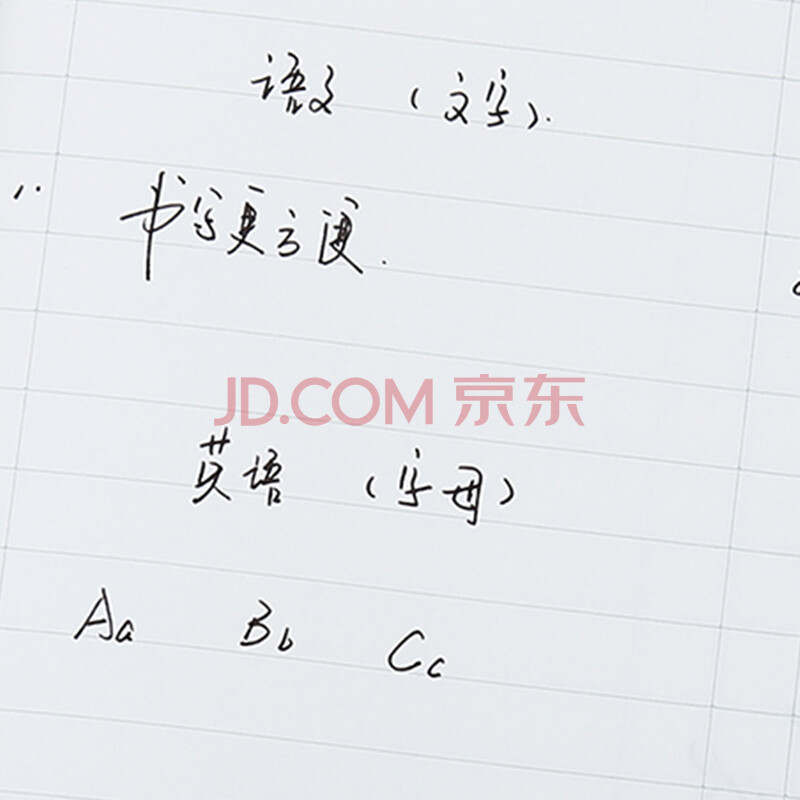 语文 (文字).
书写更方便.
JD.COM 京东
英语 (字母)
Aa Bb Cc